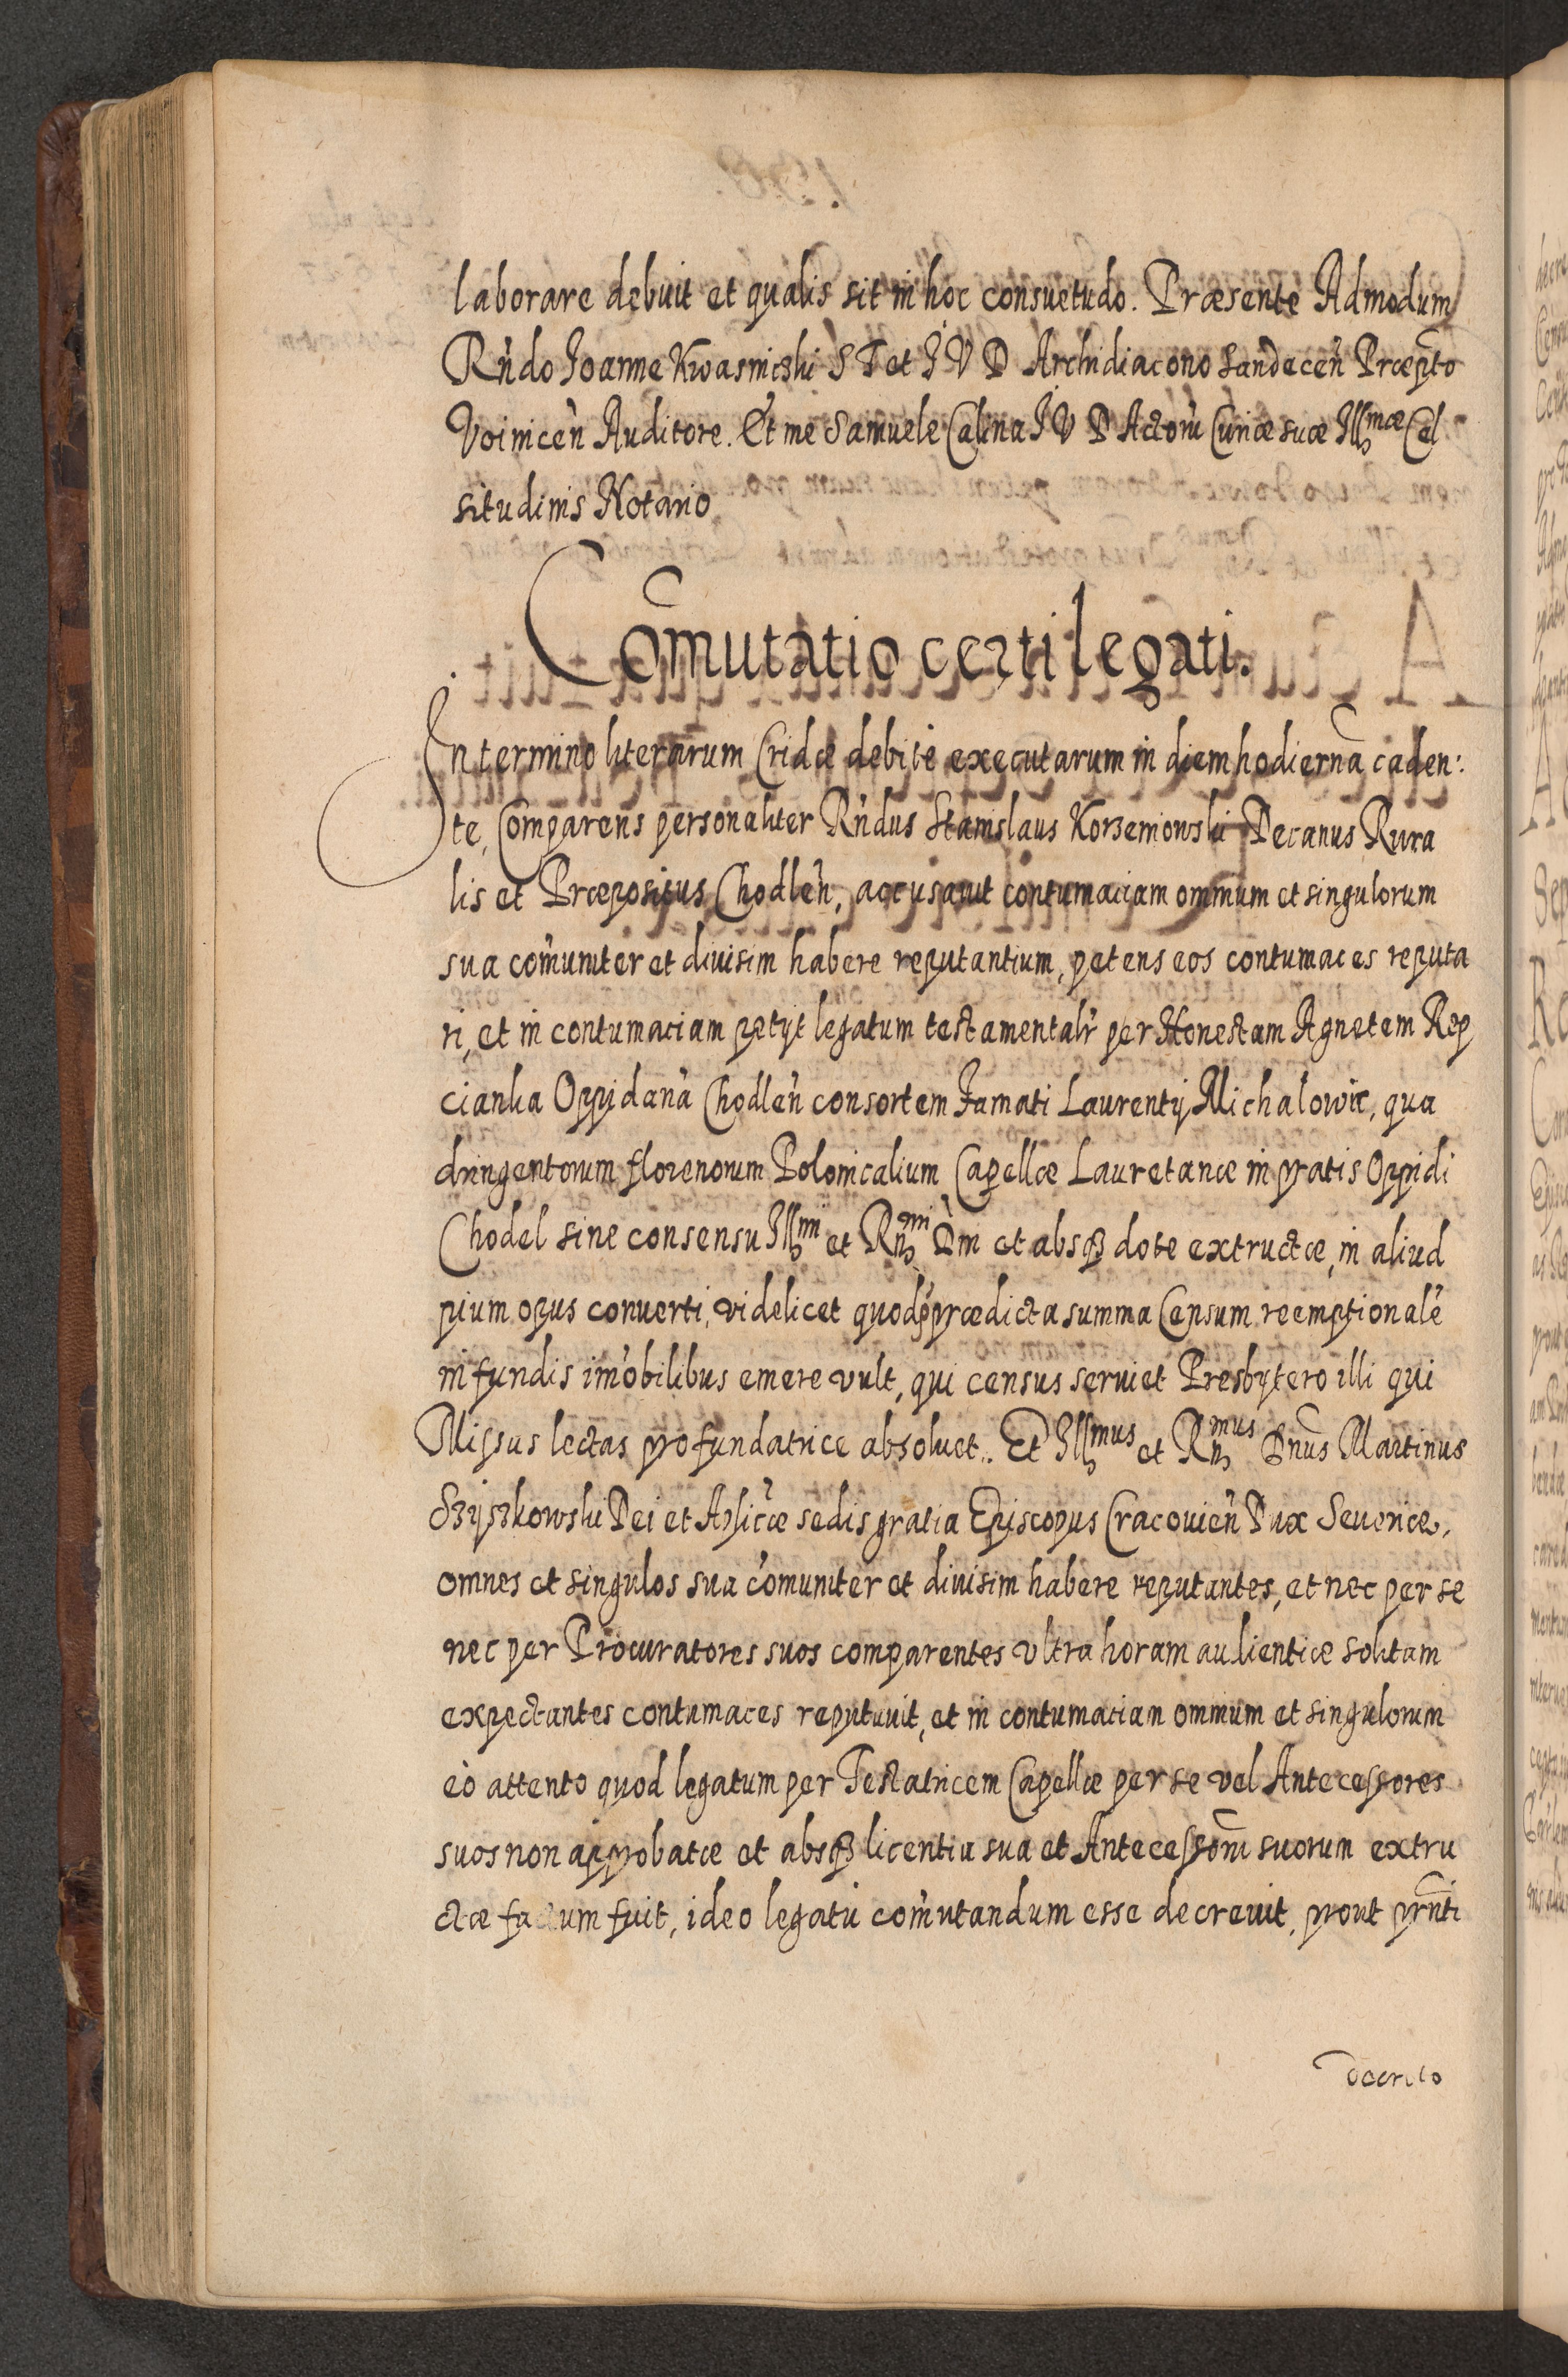 laborare debuit et qualis sit in hoc consuetudo. Præsente Admodum
Rńdo Joanne Kwasnicski S T et J V D Archidiacono Sandeceń Præpto
Voinicèn Auditore. Et me Samuele Calina J V D Actorú Curiæ suæ Illmæ Cel
situdinis Notario
Com̃utatio certi legati.
In termino literarum Cridæ debitè executarum in diem hodierna caden:
te, Comparens personaliter Rńdus Stanislaus Korzeniowski Decanus Rura
lis et Præpositus Chodleń, accusauit contumaciam omnium et singulorum
sua com̃uniter et diuisim habere reputantium, petens eos contumaces reputa
ri, et in contumaciam petyt legatum testamentalr̃ per Honestam Agnetem Rep
cianka Oppidaná Chodleń consortem Famati Laurentij Michalowic, qua
dringentorum florenorum Polonicalium Capellæ Lauretanæ in pratis Oppidi
Chodel sine consensu Illmi et Rnmi Dm et absq dote extructæ, in aliud
pium opus conuerti, videlicet quod ꝓ prædicta summa Censum reemptionalé
in fundis im̃obilibus emere vult, qui census seruiet Presbytero illi qui
Missas lectas pro fundatrice absoluet.. Et Illmus et Rnmus Dnus Martinus
Szyszkowski Dei et Aplicæ sedis gratia Episcopus Cracouień Dux Seueriæ,
omnes et singulos sua com̃uniter et diuisim habere reputantes, et nec per se
nec per Procuratores suos comparentes vltra horam audientiæ solitam
expectantes contumaces reputauit, et in contumaciam omnium et singulorum
eò attento quod legatum per Testatricem Capellæ per se vel Antecessores
suos non approbatæ et absq licentia sua et Antecessorū suorum extru
ctæ factum fuit, ideo legatū com̃utandum esse decreuit, prout prn̄ti
decreto